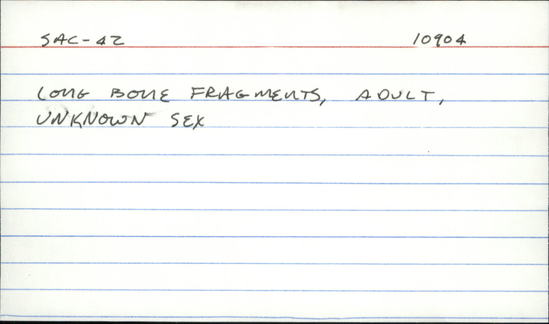 SAC-42 10904
LONG BONE FRAGMENTS, ADULT,
UNKNOWN SEX